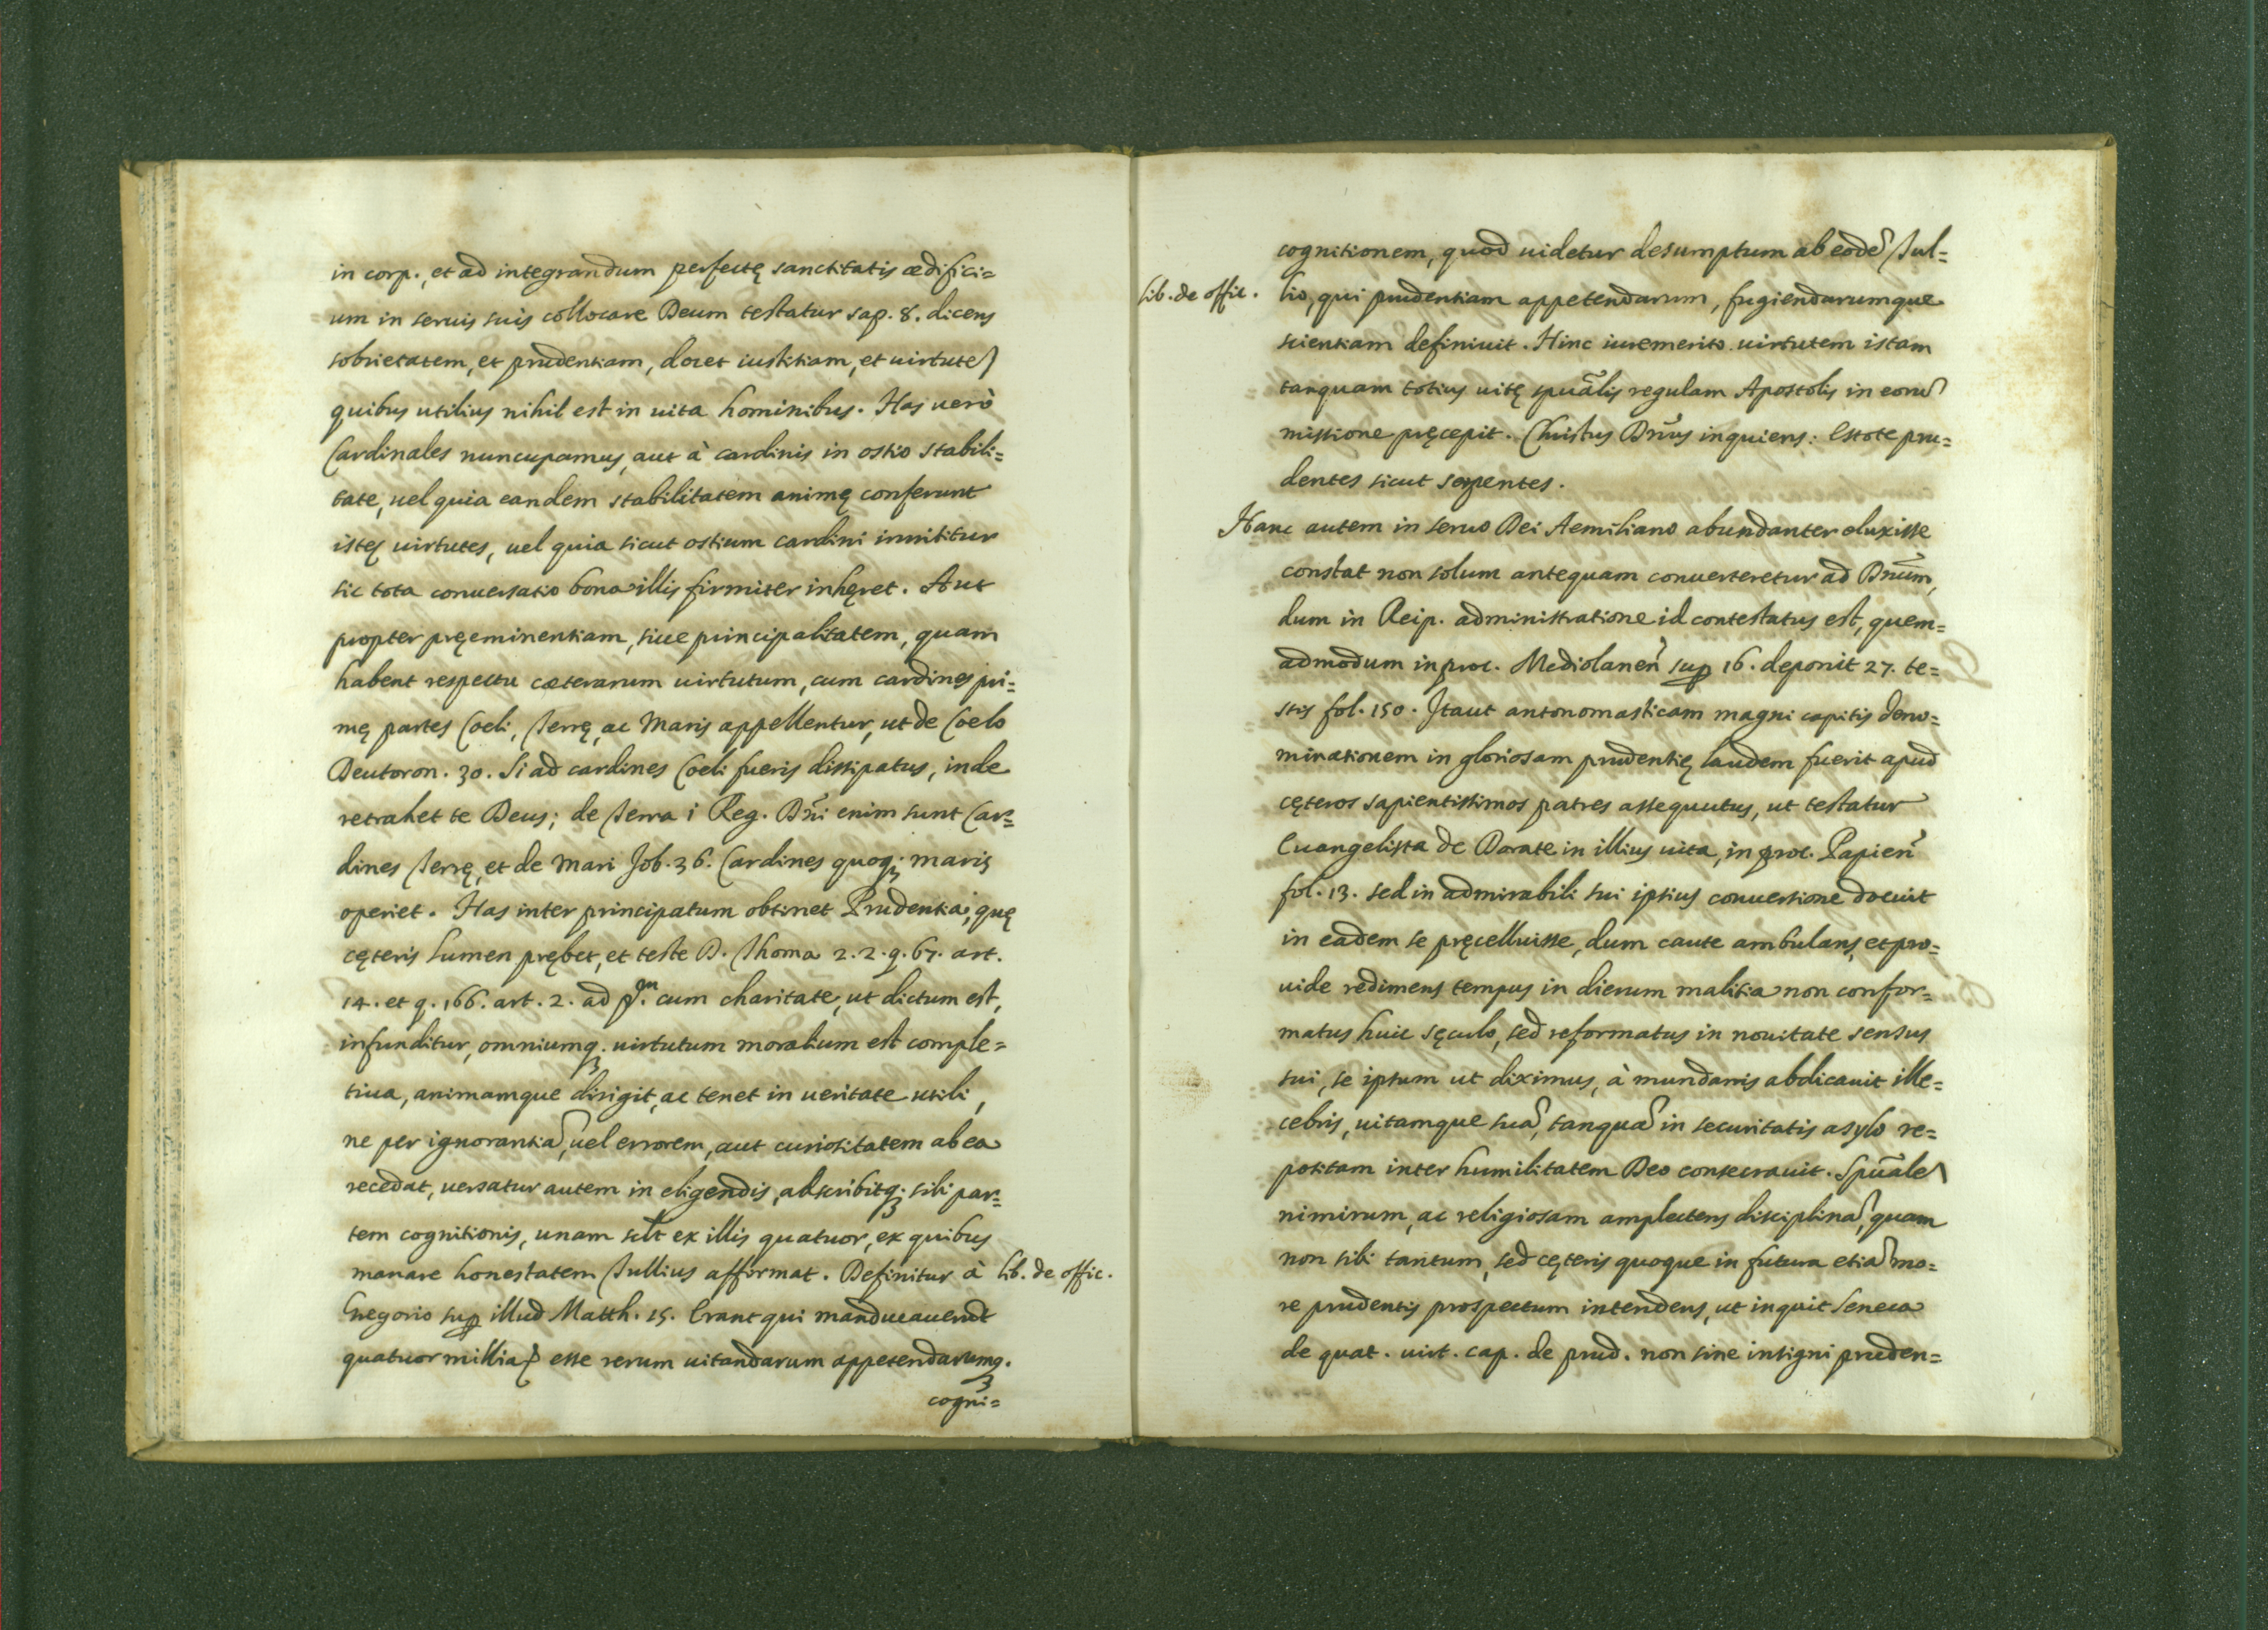 in corp., et ad integrandum perfectę sanctitatis ædifici=
um in seruis suis collocare Deum testatur sap. 8. dicens
sobrietatem, et prudentiam, docet iustitiam, et uirtutē
quibus utilius nihil est in uita hominibus. Has uerò
Cardinales nuncupamus, aut à cardinis in ostio stabili=
tate, uel quia eandem stabilitatem animę conferunt
istę uirtutes, uel quia sicut ostium cardini innititur
sic tota conuersatio bona illis firmiter inhęret. Aut
propter pręeminentiam, siue principalitatem, quam
habent respectu cæterarum uirtutum, cum cardines pri=
mę partes Coeli, Terrę, ac Maris appellentur, ut de Coelo
Deutoron. 30. Si ad cardines Coeli fueris dissipatus, inde
retrahet te Deus; de Terra i Reg. Dñi enim sunt Car=
dines Terrę, et de Mari Job. 36. Cardines quoq; maris
operiet. Has inter principatum obtinet Prudentia, quę
cęteris lumen prębet, et teste D. Thoma 2. 2. q. 67. art.
14. et q. 166. art. 2. ad pm. cum charitate, ut dictum est,
infunditur, omniumq; uirtutum moralium est comple=
tiua, animamque dirigit, ac tenet in ueritate utili,
ne per ignorantiā, uel errorem, aut curiositatem ab ea
recedat, uersatur autem in eligendis, adscribitq; sibi par=
tem cognitionis, unam scłt ex illis quatuor, ex quibus
manare honestatem Tullius affirmat. Definitur à
lib. de offic.
Gregorio sup illud Matth. 15. Erant qui manducauerūt
quatuor millia, esse rerum uitandarum appetendarumq;
cogni=
cognitionem, quod uidetur desumptum ab eodē Tul=
lib. de offic.
lio, qui prudentiam appetendarum, fugiendarumque
scientiam definiuit. Hinc iuremerito uirtutem istam
tanquam totius uitę spuālis regulam Apostolis in eorū
missione pręcepit. Christus Dñus inquiens: Estote pru=
dentes sicut serpentes.
Hanc autem in seruo Dei Aemiliano abundanter eluxisse
constat non solum antequam conuerteretur ad Dñum,
dum in Reip. administratione id contestatus est, quem=
admodum in proc. Mediolaneñ sup 16. deponit 27. te=
stis fol. 150. Itaut antonomasticam magni capitis deno=
minationem in gloriosam prudentię laudem fuerit apud
cęteros sapientissimos patres assequutus, ut testatur
Euangelista de Dorate in illius uita, in proc. Papieñ
fol. 13. sed in admirabili sui ipsius conuersione docuit
in eadem se pręcelluisse, dum caute ambulans, et pro=
uide redimens tempus in dierum malitia non confor=
matus huic sęculo, sed reformatus in nouitate sensus
sui, se ipsum ut diximus, à mundanis abdicauit ille=
cebris, uitamque suā, tanquā in securitatis asylo re=
positam inter humilitatem Deo consecrauit. Spuālē
nimirum, ac religiosam amplectens disciplinā, quam
non sibi tantum, sed cęteris quoque in futura etiā mo=
re prudentis prospectum intendens, ut inquit Seneca
de quat. uirt. cap. de prud. non sine insigni pruden=